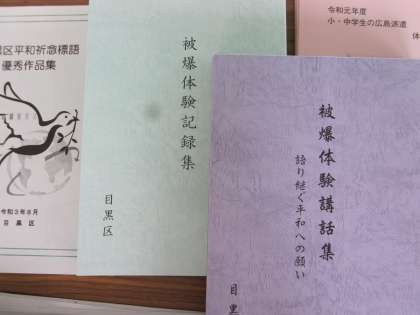 区平和祈念標語
優秀作品集
令和3年8月
目黒区
被爆体験記録集
目黒区
令和元年度
小・中学生の広島派遣
体
被爆体験講話集
語り継ぐ平和への願い
目黒